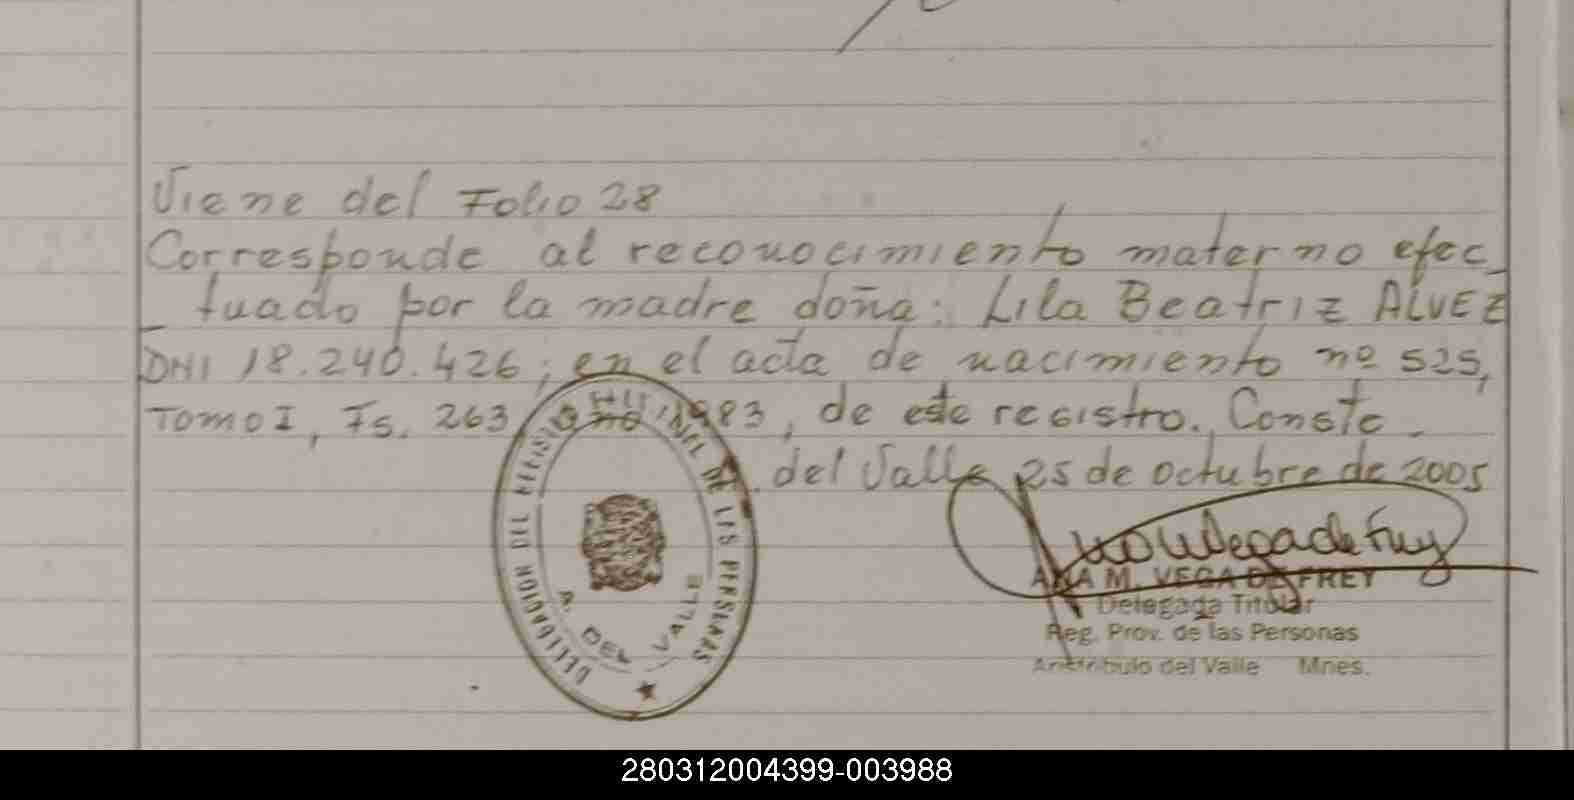 Viene del Folio 28
Corresponde al reconocimiento materno efec_
_ tuado por la madre doña: Lila Beatriz ALVEZ
DNI 18.240.426; en el acta de nacimiento nº 525,
TOMO I, Fs. 263, año 1983, de este registro. Conste.
A. del Valle 25 de octubre de 2005
DELEGACION DEL REGISTRO PROVINCIAL DE LAS PERSONAS
A. DEL VALLE
Ana M Vega de Frey
ANA M. VEGA DE FREY
Delegada Titular
Reg. Prov. de las Personas
Aristóbulo del Valle Mnes.
280312004399-003988